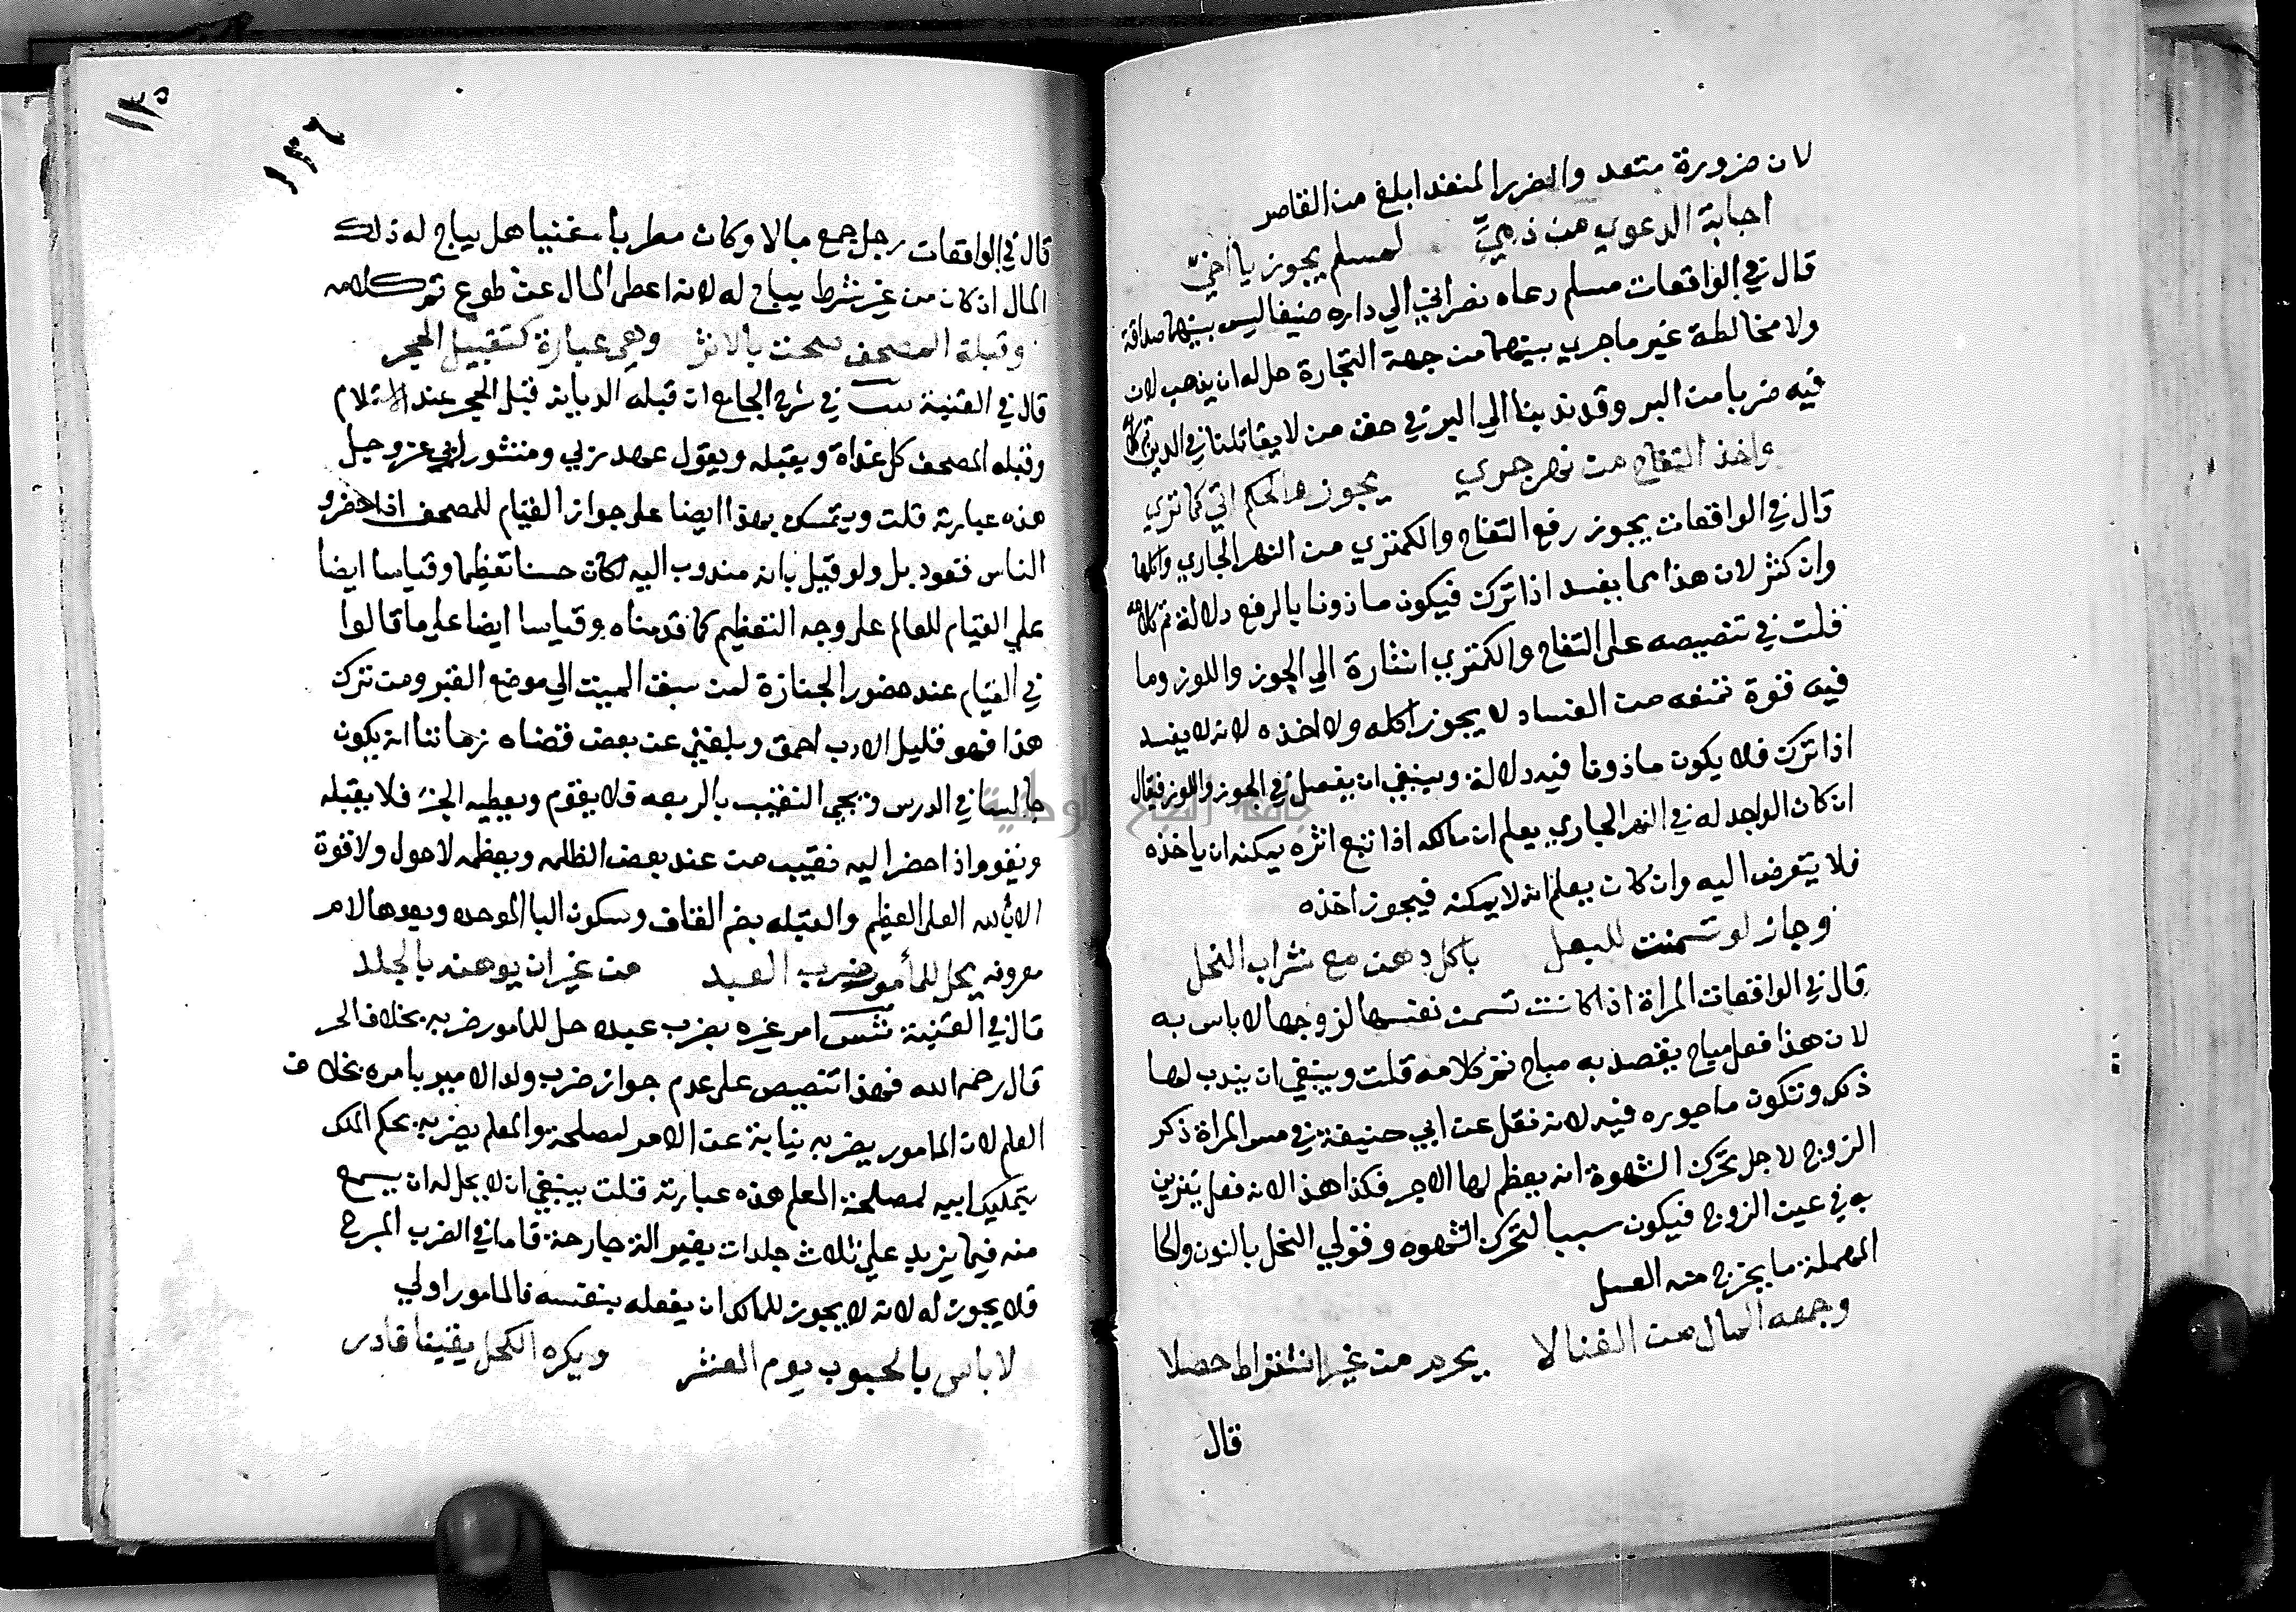 لان ضرورة متعد والضرر المنفد ابلغ من القاصر
اجابة الدعوي من ذميّ لمسلم يجوز يا اخيّ
قال في الواقعات مسلم دعاه نصراني الي داره ضيفا ليس بينهما صداقة
ولا مخالطة غير ما جري بينهما من جهة التجارة حل له ان يذهب لان
فيه ضربا من البر وقد ندبنا الي البر في حق من لا يقاتلنا في الدين
واخذ التفاح من نهر جري يجوز والحكم اتي كما تري
قال في الواقعات يجوز رفع التفاح والكمثري من النهر الجاري واكلها
وان كثر لان هذا مما يفسد اذا ترك فيكون ماذونا بالرفع دلالة تم كلامه
قلت في تنصيصه علي التفاح والكمثري اشارة الي الجوز واللوز وما
فيه قوة تمنعه من الفساد لا يجوز اكله ولا اخذه لانه لا يفسد
اذا ترك فلا يكون ماذونا فيه دلالة وينبغي ان يفصل في الجوز واللوز فيقال
ان كان الواجد له في النهر الجاري يعلم ان مالكه اذا تبع اثره يمكنه ان ياخذه
فلا يتعرض اليه وان كان يعلم انه لا يمكنه فيجوز اخذه
وجاز لو تسمنت للبعل باكل دهن مع شراب النحل
قال في الواقعات المراة اذا كانت تسمن نفسها لزوجها لا باس به
لان هذا فعل مباح يقصد به مباح تم كلامه قلت وينبغي ان يندب لها
ذلك وتكون ماجوره فيه لانه نقل عن ابي حنيفة في مس المراة ذكر
الزوج لاجل تحرك الشهوة انه يعظم لها الاجر فكذا هذا لانه فعل يتزين
به في عين الزوج فيكون سببا لتحرك الشهوه وقولي النحل بالنون والحا
المهملة ما يخرج منه العسل
وجمعه المال من الغنا لا يحرم من غير اشتراط حصلا
قال
١٣٥
١٣٦
قال في الواقعات رجل جمع مالا وكان مطربا مغنيا هل يباح له ذلك
المال ان كان من غير شرط يباح له لانه اعطي المال عن طوع تم كلامه
وقبلة المصحف صحت بالاثر وهي عبارة كتقبيل الحجر
قال في القنية في شرح الجامع ان قبله الديانه قبل الحجر عند الاستلام
وقبله المصحف كل غداة ويقبله ويقول عهد ربي ومنشور ربي عز وجل
هذه عبارته قلت ويتمسك بهذا ايضا علي جواز القيام للمصحف اذا حضر و
الناس قعود بل ولو قيل بانه مندوب اليه لكان حسنا تعظيما وقياسا ايضا
علي القيام للعالم علي وجه التعظيم كما قدمناه وقياسا ايضا علي ما قالوا
في القيام عند حضور الجنازة لمن سبق الميت الي موضع القبر ومن ترك
هذا فهو قليل الادب احمق وبلغني عن بعض قضاه زماننا انه يكون
جالسا في الدرس فيجي النقيب بالربعه فلا يقوم ويعطيه الجزء فلا يقبله
ويقوم اذا حضر اليه نقيب من عند بعض الظلمه ويعظمه لا حول ولا قوة
الا بالله العلي العظيم والقبله بضم القاف وسكون البا الموحده وبعدها لام
معرونه يحل للمأمور ضرب العبد من غير ان يوهنه بالجلد
قال في القنية امر غيره بضرب عبده حل للمامور ضربه بخلاف الحر
قال رحمه الله فهذا تنصيص علي عدم جواز ضرب ولد الامير بامره بخلاف
العلم لان المامور يضربه نيابة عن الامر لمصلحة والمعلم يضربه بحكم الملك
بتمليك ابيه لمصلحة المعلم هذه عبارته قلت ينبغي ان لا يحل له ان يسمع
منه فيما يزيد علي ثلاث جلدات بغير الة جارحة فاما في الضرب المبرح
فلا يجوز له لانه لا يجوز للمالك ان يفعله بنفسه فالمامور اولي
لا باس بالحبوب يوم العشر ويكره الكحل يقينا فادر